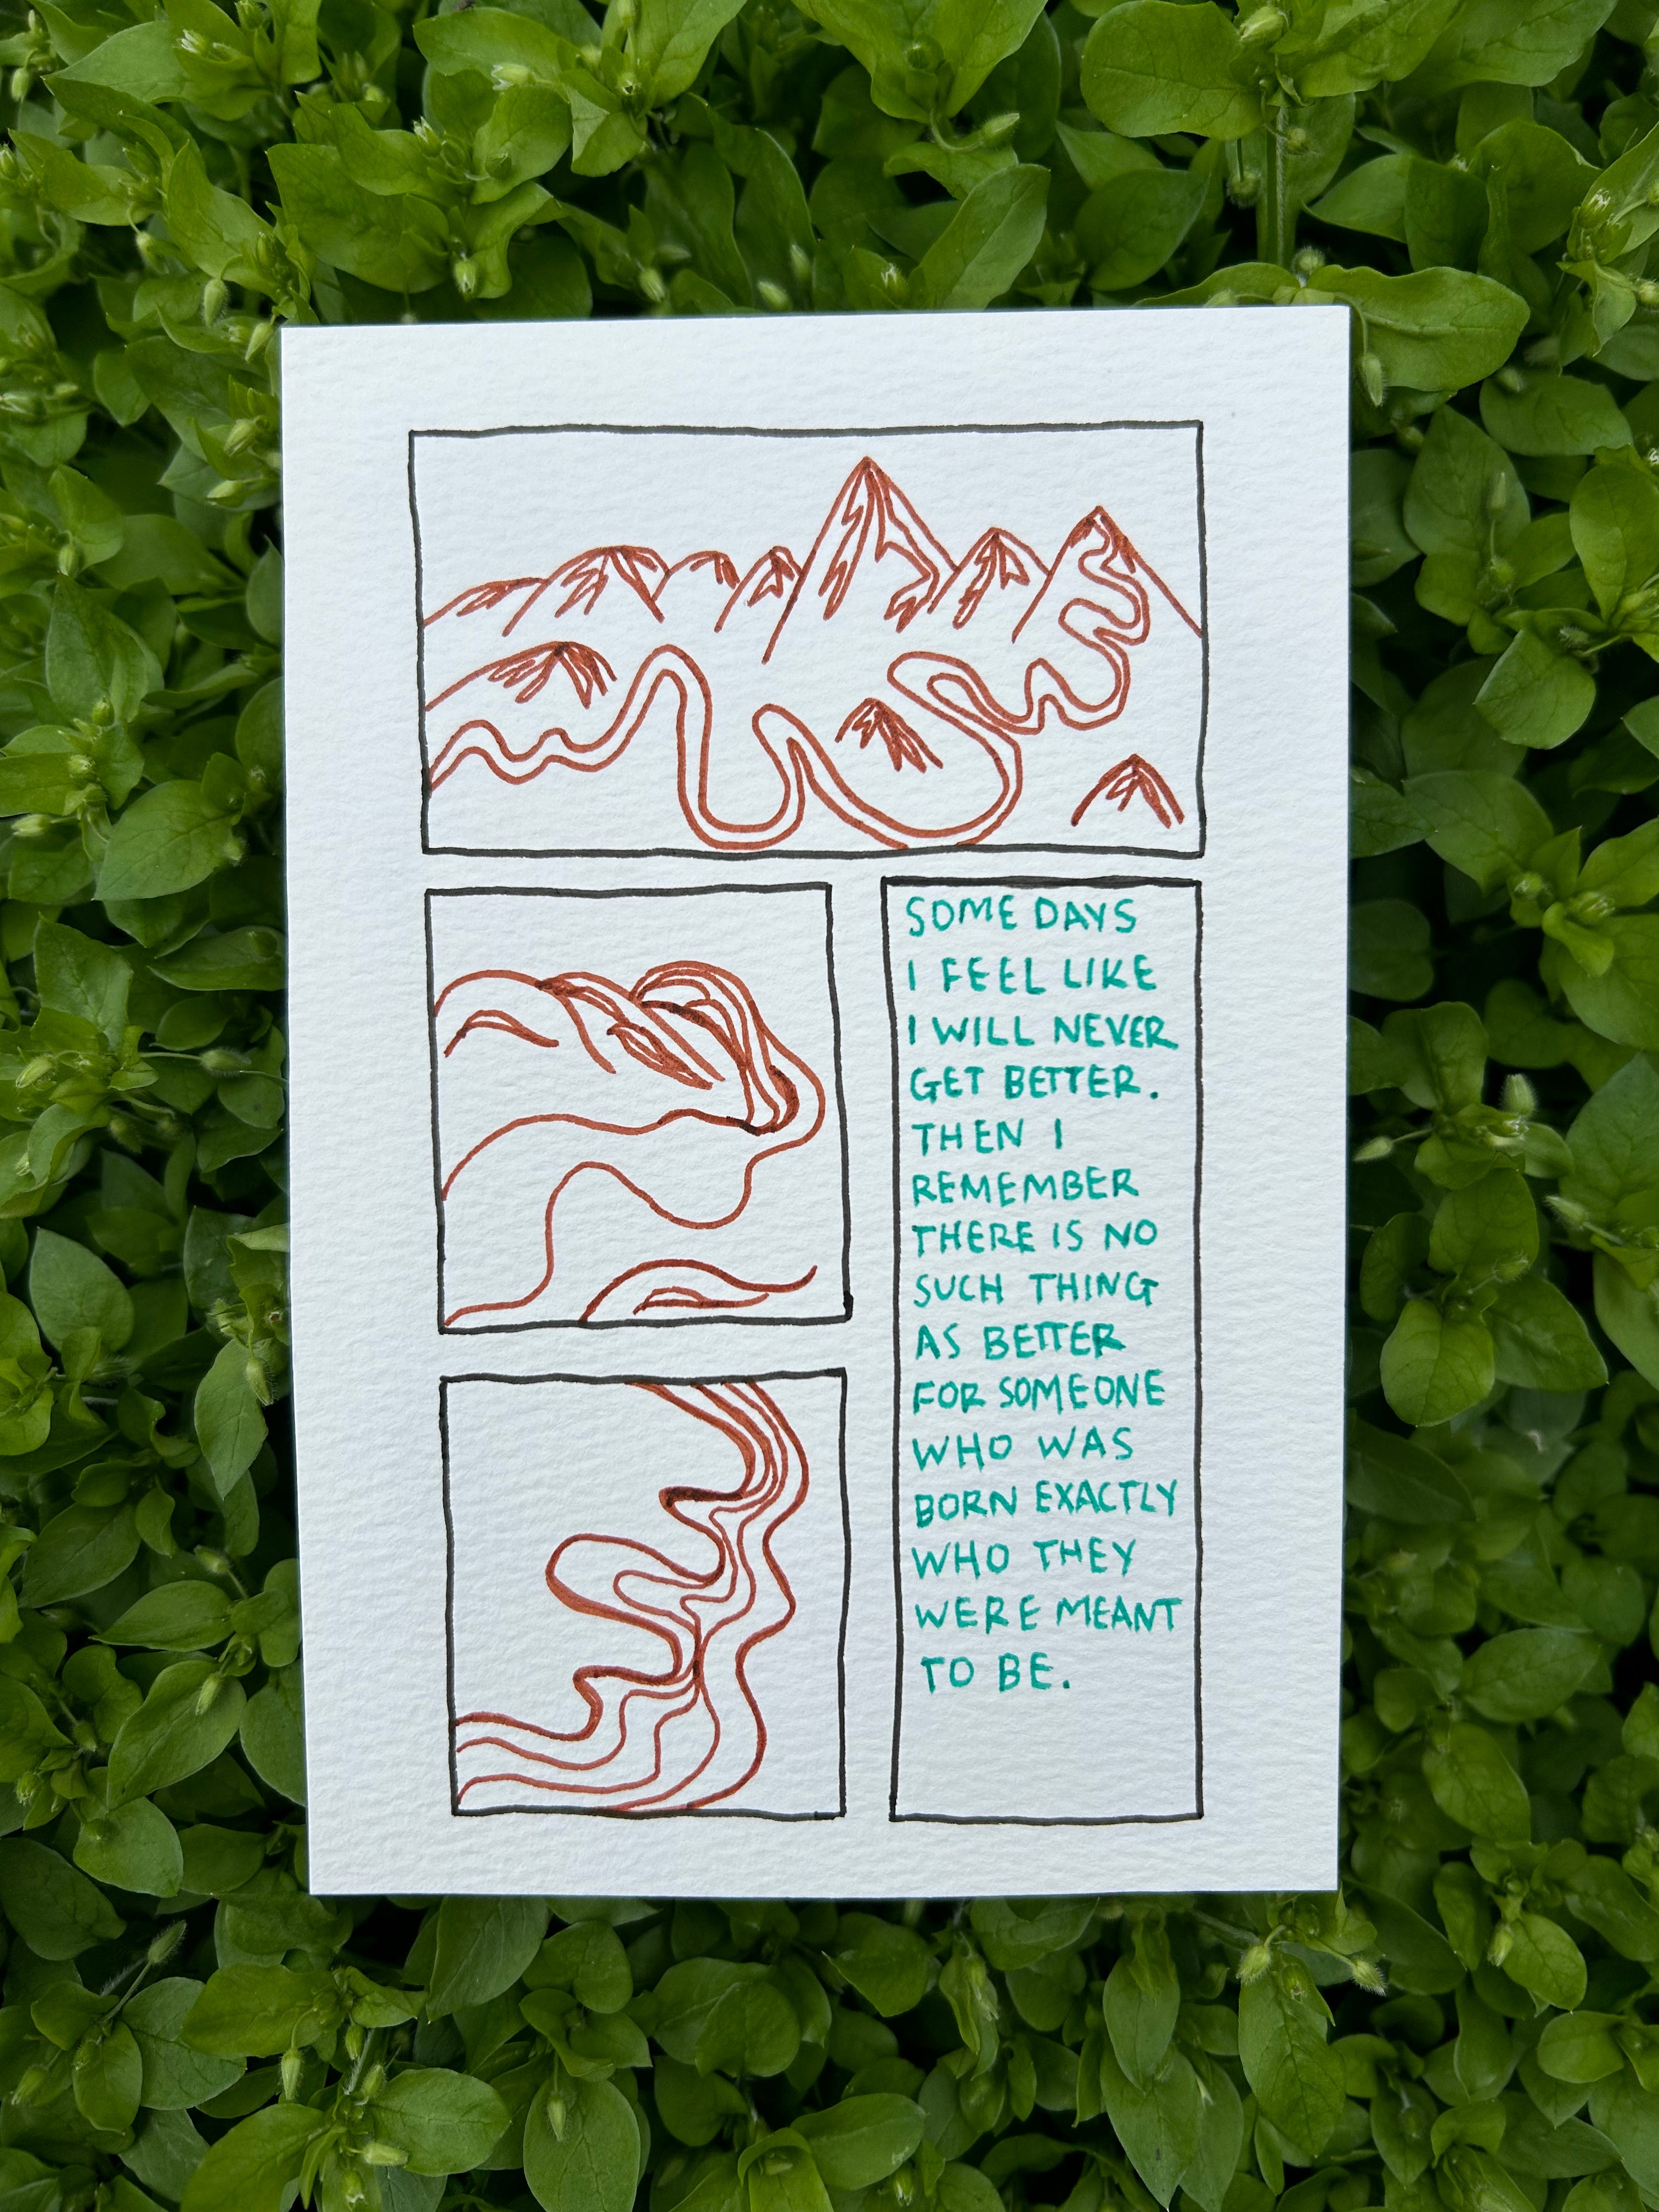 SOME DAYS
I FEEL LIKE
I WILL NEVER
GET BETTER.
THEN I
REMEMBER
THERE IS NO
SUCH THING
AS BETTER
FOR SOMEONE
WHO WAS
BORN EXACTLY
WHO THEY
WERE MEANT
TO BE.